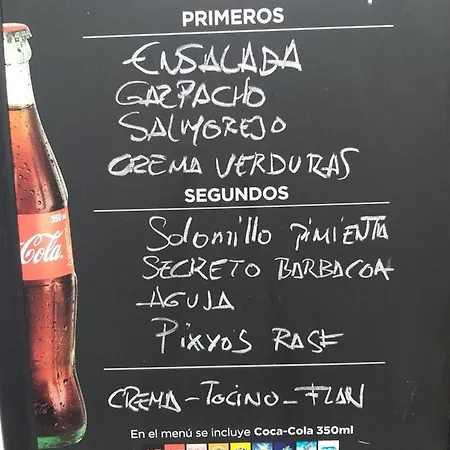 PRIMEROS
ENSALADA
GAZPACHO
SALMOREJO
CREMA VERDURAS
SEGUNDOS
350 ml
Coca-Cola.
Solomillo PIMIENTA
SECRETO BARBACOA
AGUJA
CREMA - TOCINO - FLAN
En el menú se incluye Coca-Cola 350ml